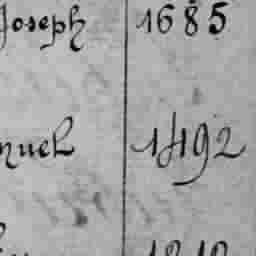 Joseph 1685
nuel 1492